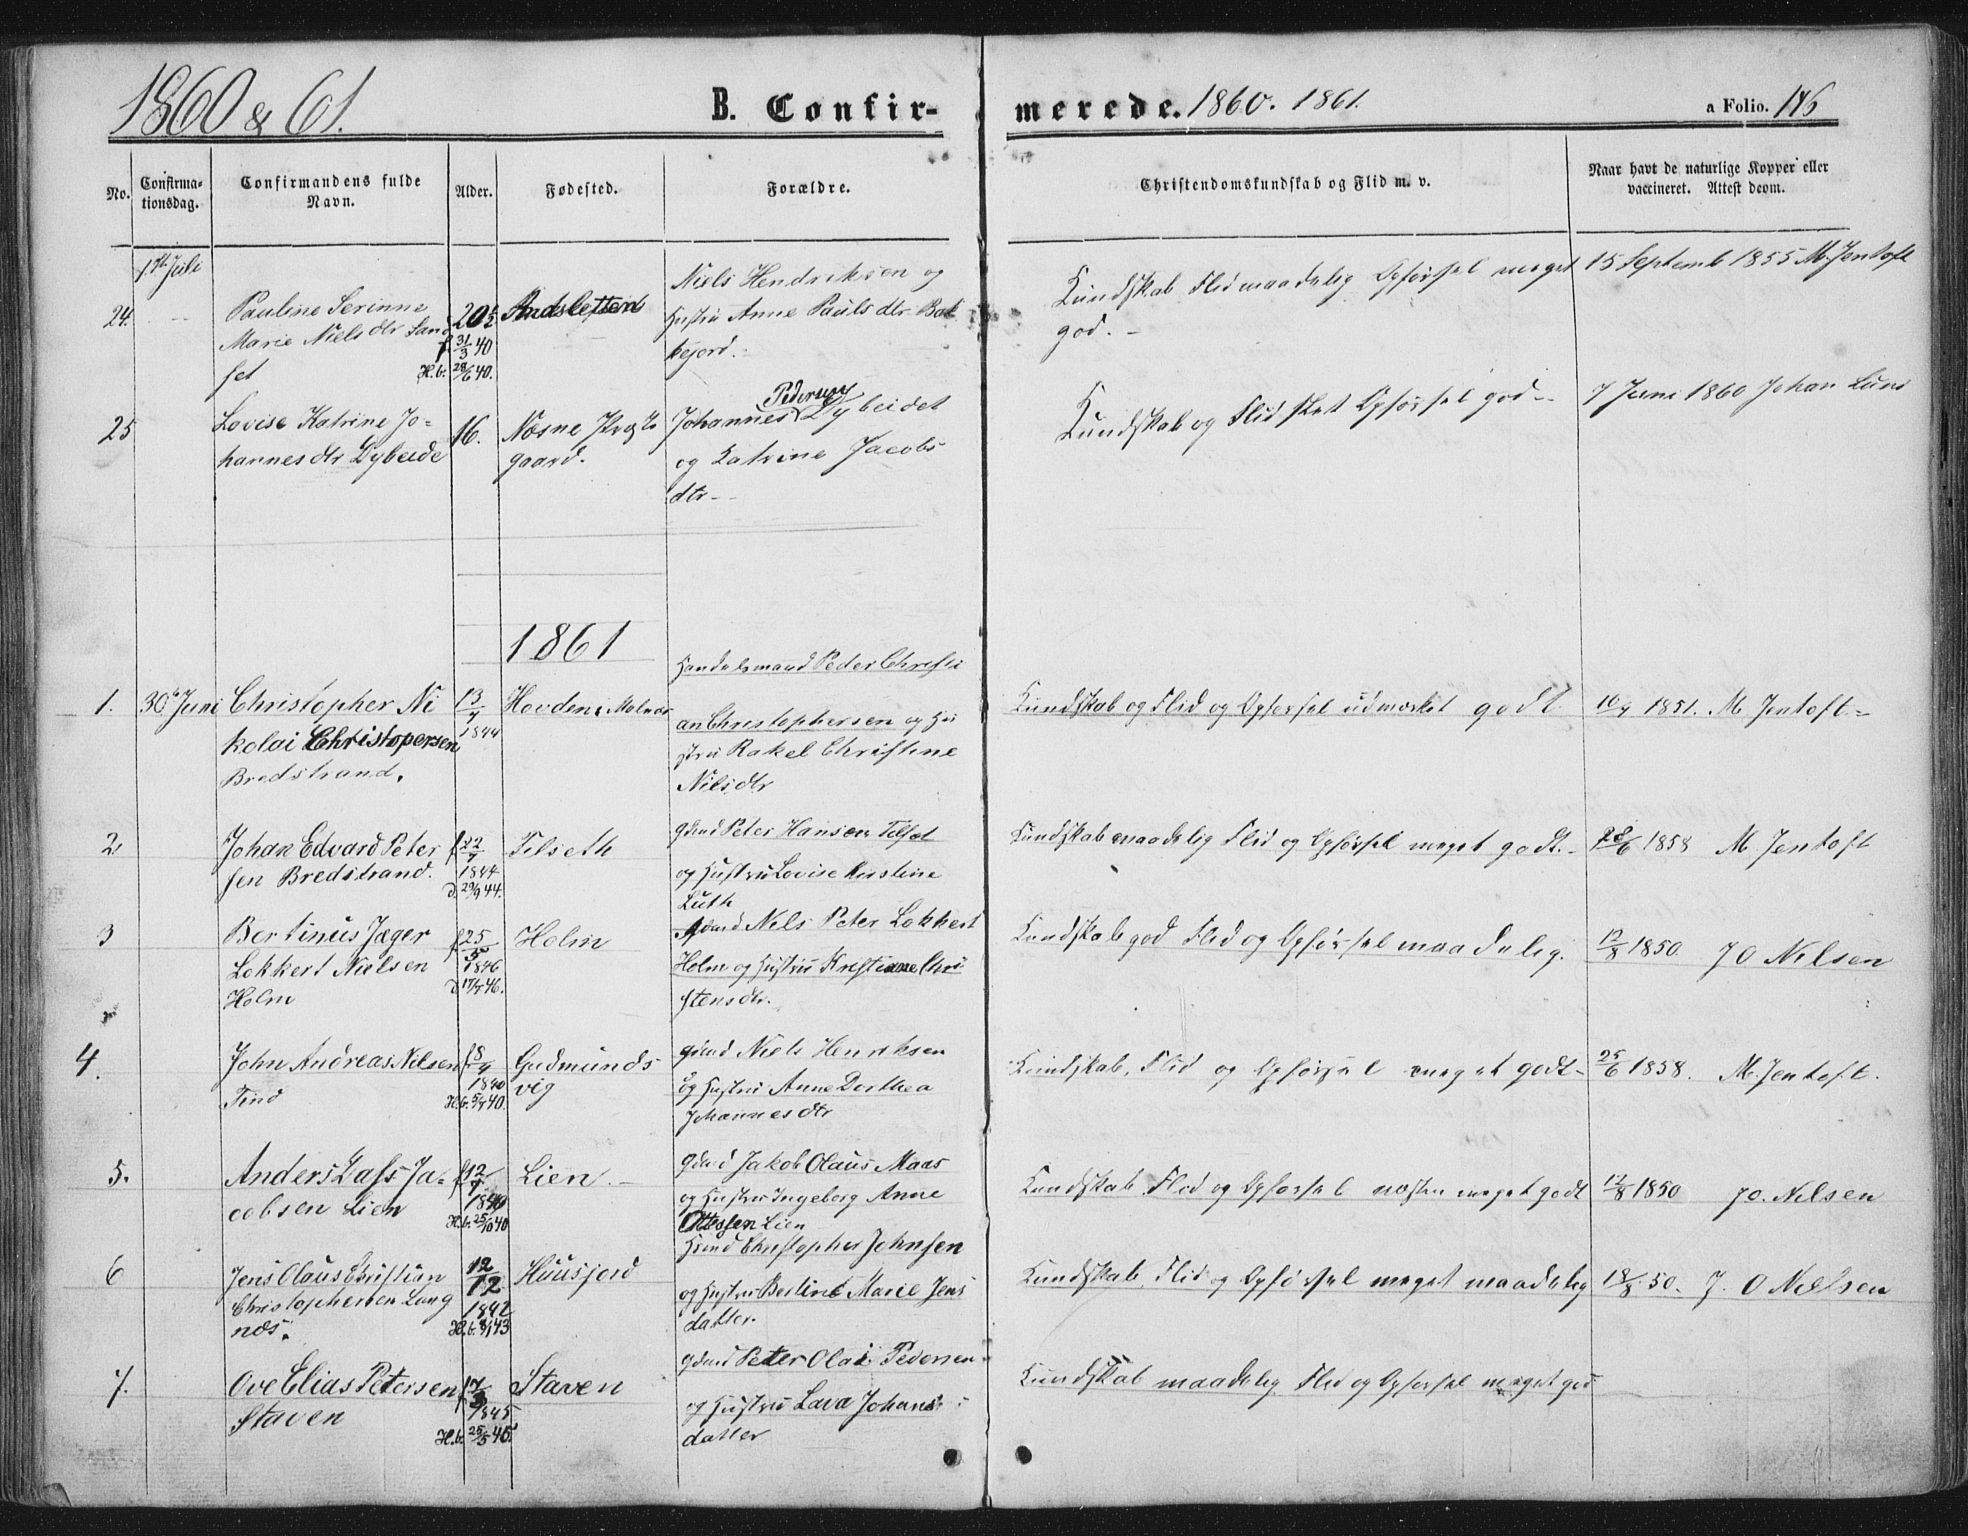 1860 & 61.
B. Confir-
merede. 1860. 1861.
a Folio. 146
No.
Confirma-
tionsdag.
Confirmandens fulde
Navn.
Alder.
Fødested.
Forældre.
Christendomskundskab og Flid m. v.
Naar havt de naturlige Kopper eller
vaccineret. Attest derom.
1ste Juli
24.
Pauline Serinne
Marie Nielsdtr Sand
set
20 1/2
f 31/3 40
H.b. 28/6 40.
Andsletten
Niels Hendriksen og
Hustru Anne Paulsdtr Bak
kejord.
Kundskab Flid maadelig Opførsel meget
god. -
15 Septemb 1855 M. Jentoft
25
Lovise Katrine Jo-
hannesdtr Dybeide
16.
Næsne Præste
gaard.
Pedersen
Johannes Dybeidet
og Katrine Jacobs
dtr -
Kundskab og Flid slet Opførsel god -
7 Juni 1860 Johan Lund
1861
1.
30te Juni
Christopher Ni
kolai Christopersen
Bredstrand.
13/7
1844
Hovden i Malnæs
Handelsmand Peder Christi
an Christophersen og Hu
stru Rakel Christine
Nilsdtr
Kundskab og Flid og Opførsel udmærket godt
10/9 1851. M. Jentoft -
2.
Johan Edvard Peter
sen Bredstrand.
f 22/7
1844
d. 29/9 44.
Tilseth
Gdmd Peter Hansen Tilset
og Hustru Lovise Kirstine
Luth
Kundskab maadelig Flid og Opførsel meget godt. -
28/6 1858 M. Jentoft
3
Bertinus Jæger
Lokkert Nielsen
Holm
f 25/5
1846
d. 17/7 46.
Holm
Gdmd Nels Peter Lokkert
Holm og Hustru Kristianne Chri
stensdtr.
Kundskab god Flid og Opførsel maadelig.
12/8 1850. J O Nilsen
4.
John Andreas Nilsen
Tind
f 8/4
1840
H.b. 5/7 40.
Gudmunds
vig
Gdmd Niels Henriksen
og Hustru Anne Dorthea
Johannesdtr
Kundskab, Flid og Opførsel meget godt -
25/6 1858. M. Jentoft.
5.
Anders Zass Ja-
cobsen Lien
f 12/7
1840
H.b. 25/10 40
Lien. -
Gdmd Jakob Olaus Maas
og Hustru Ingeborg Anne
Ottessen Lien
Kundskab, Flid og Opførsel næsten meget godt
12/8 1850 J O. Nilsen
6
Jens Olaus Christian
Christophersen Lang
næs.
12/12
1842
Huusjord
Hmd Christopher Johnsen
og Hustru Berline Marie Jens
datter.
Kundskab, Flid og Opførsel meget maadelig
18/8 50. J. O Nielsen
7.
Ove Elias Petersen
Staven
1845
H.b. 25/5 45.
Staven
Gdmd Peter Olai Pedersen
og Hustru Lava Johans
datter
Kundskab maadelig Flid og Opførsel meget god